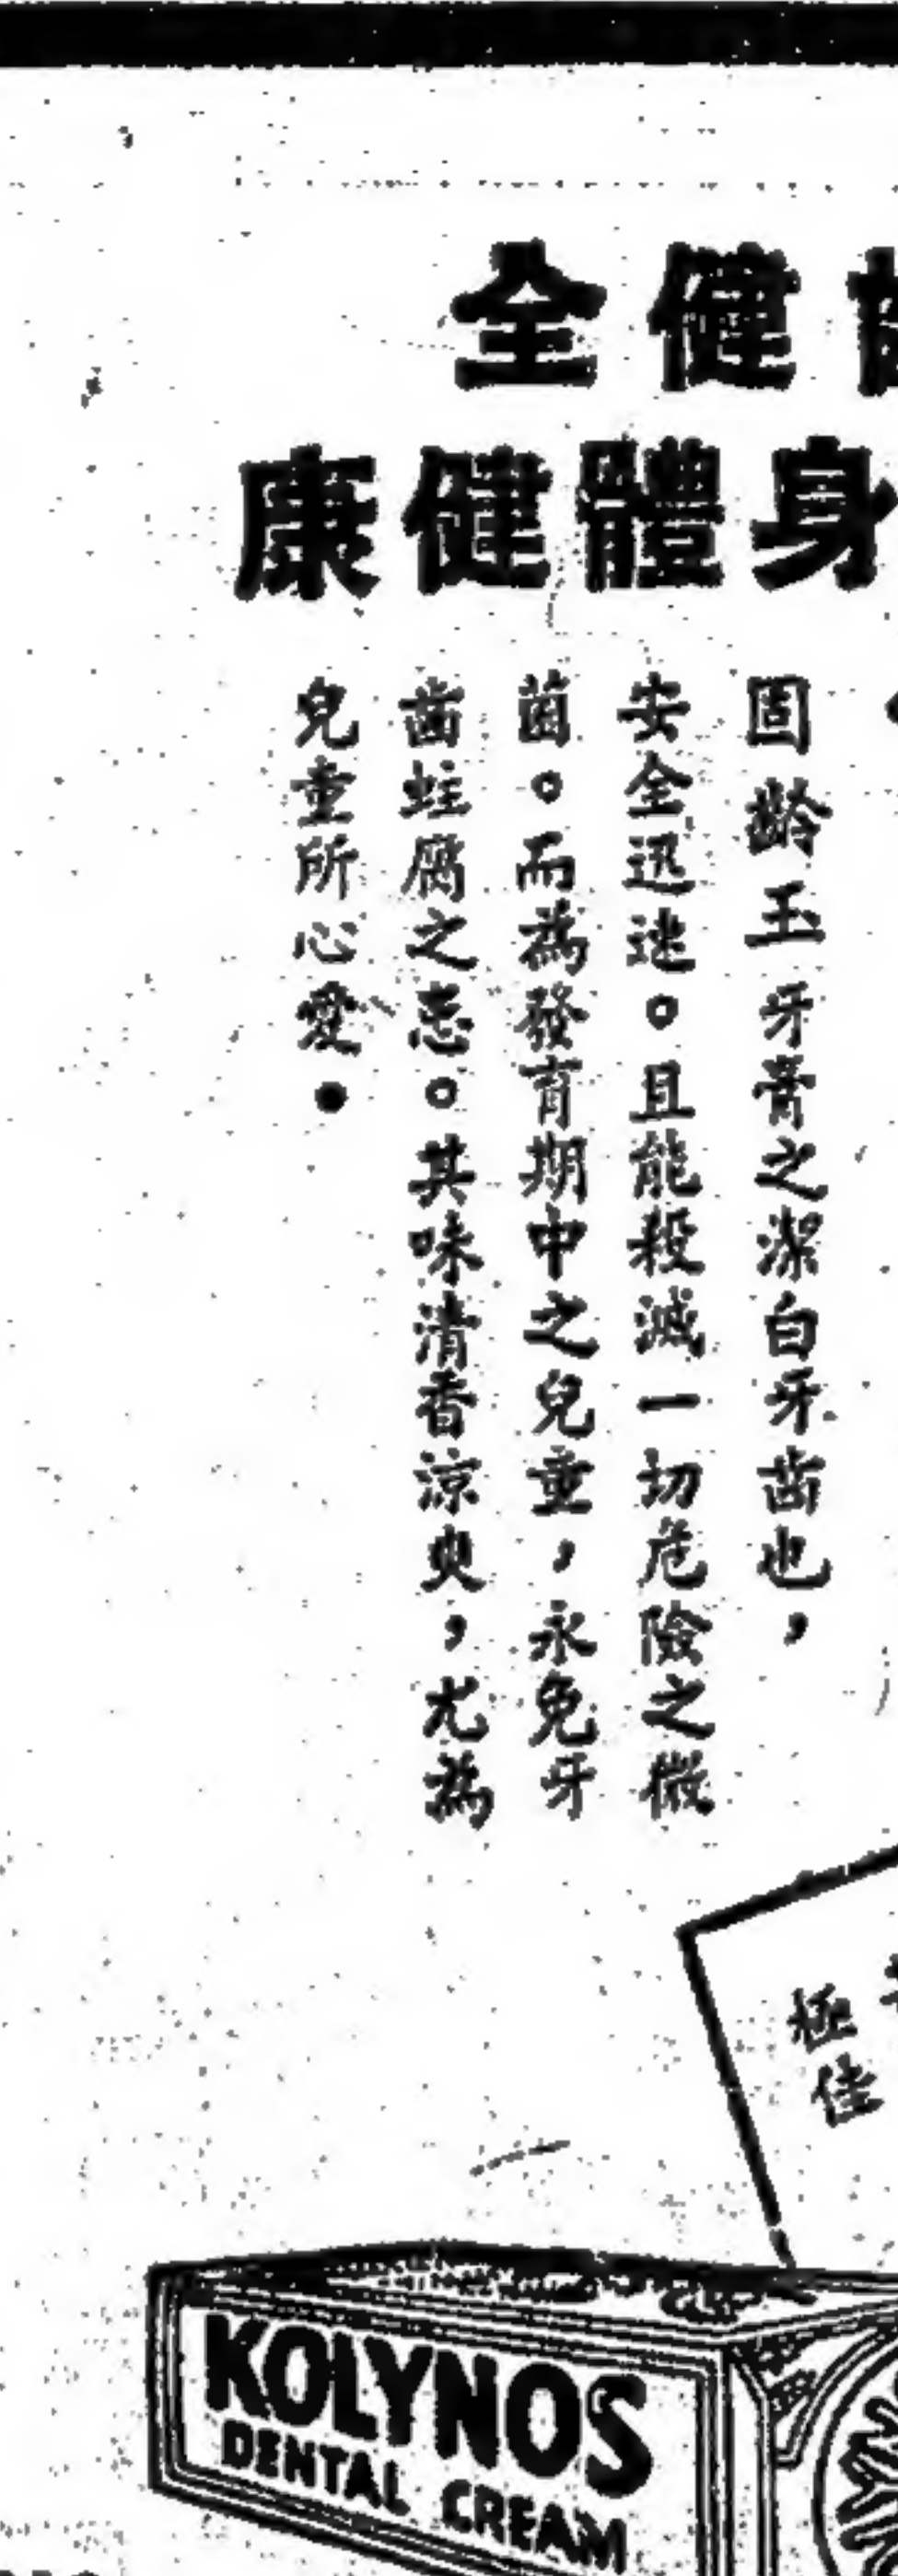 健全
身體健康
固齡玉牙膏之潔白牙齒也，
安全迅速。且能殺滅一切危險之微
菌。而為發育期中之兒童，永免牙
齒蛀腐之患。其味清香涼爽，尤為
兒童所心愛●
極佳
KOLYNOS
DENTAL CREAM